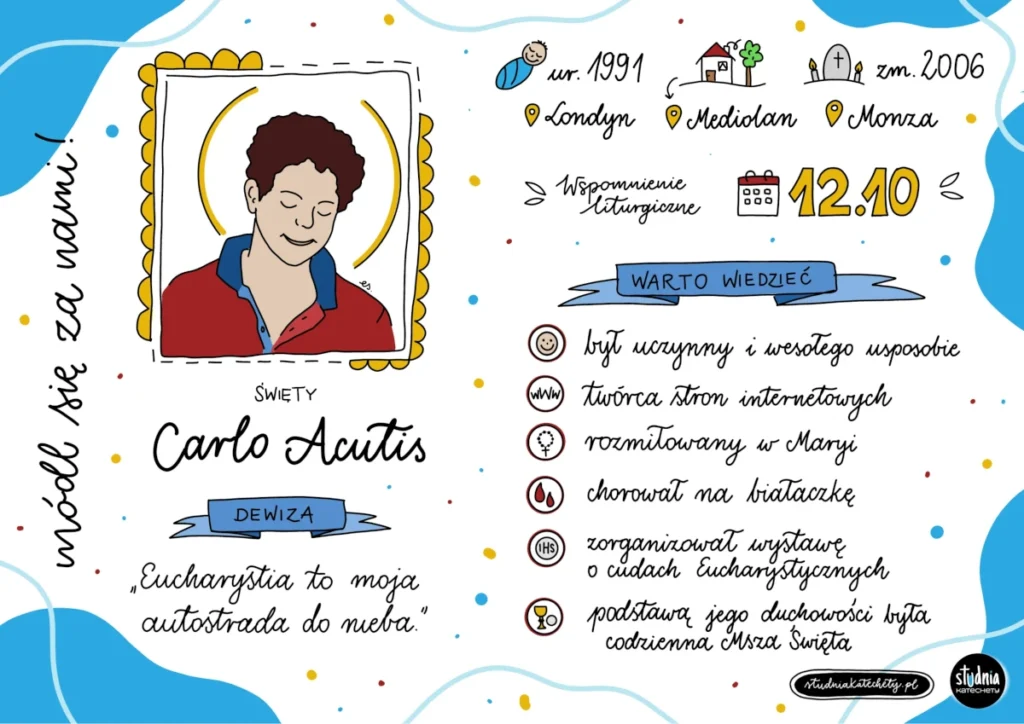 módl się za nami!
ŚWIĘTY
Carlo Acutis
DEWIZA
„Eucharystia to moja
autostrada do nieba."
es
ur. 1991
zm. 2006
Londyn
Mediolan
Monza
Wspomnienie
liturgiczne
12.10
WARTO WIEDZIEĆ
był uczynny i wesołego usposobie
WWW
twórca stron internetowych
rozmiłowany w Maryi
chorował na białaczkę
IHS
zorganizował wystawę
o cudach Eucharystycznych
podstawą jego duchowości była
codzienna Msza Święta
studniakatechety.pl
studnia
KATECHETY